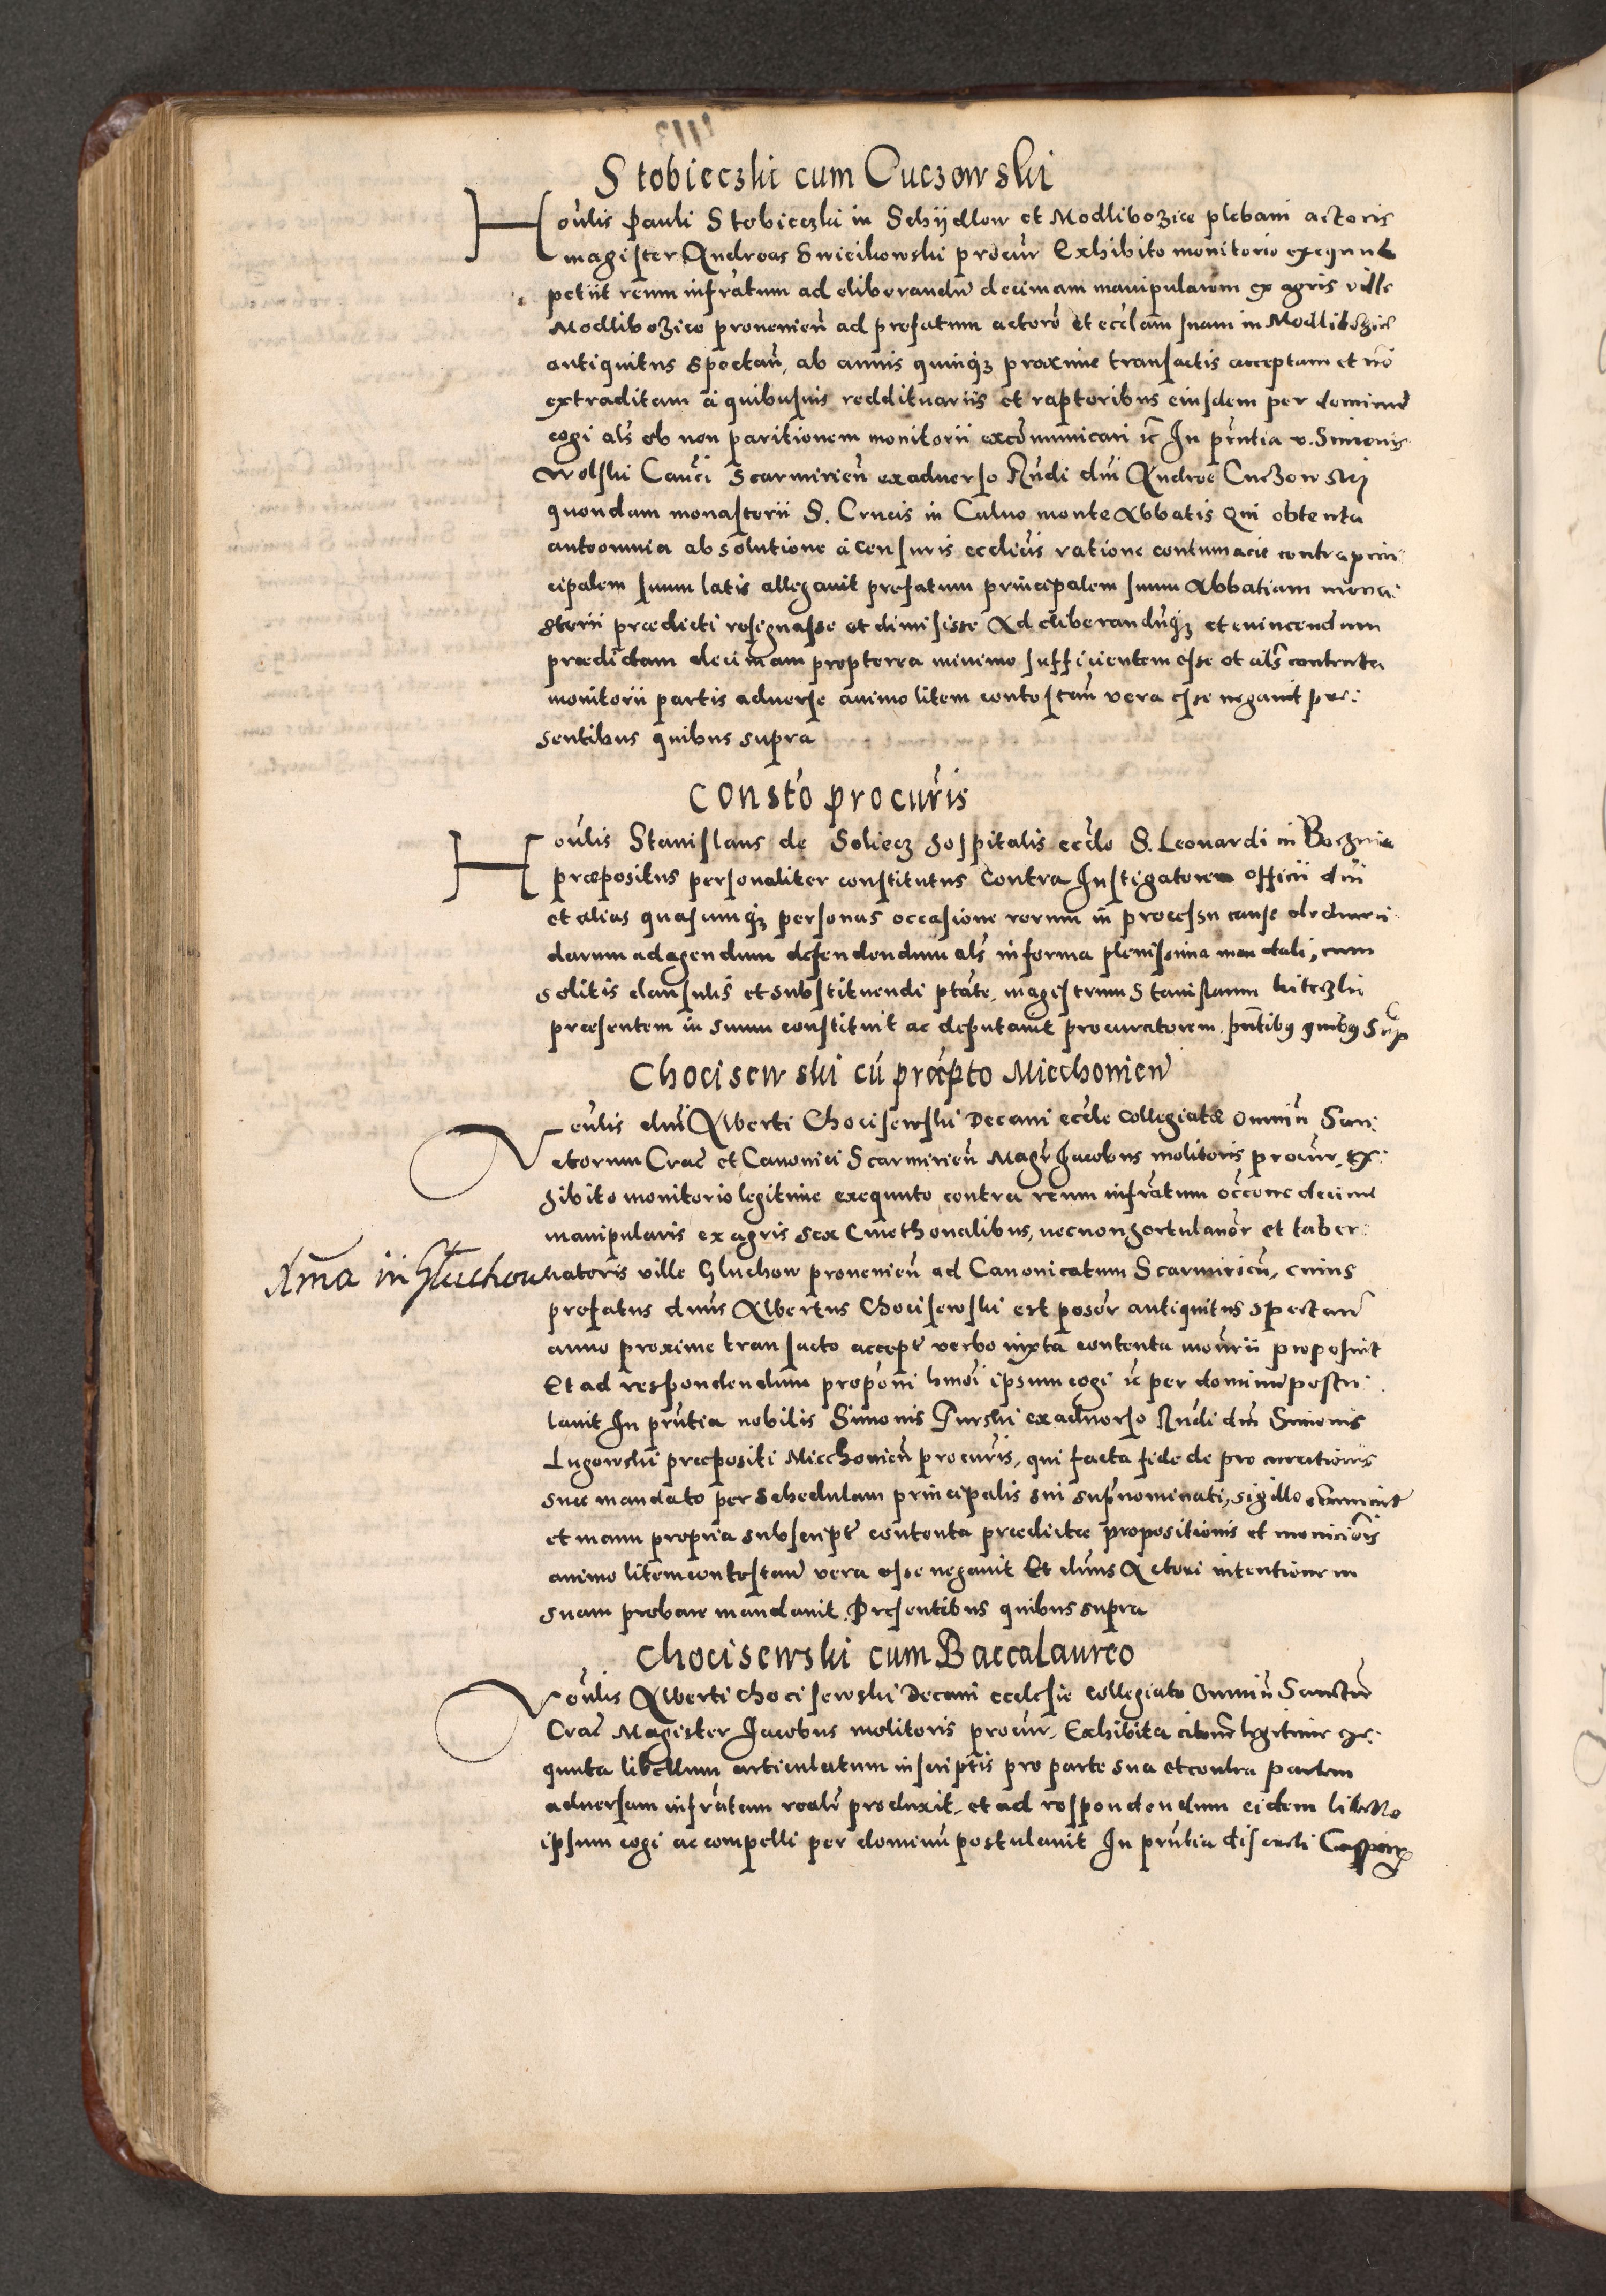 Stobieczki cum Cuczowski
Honlis Pauli Stobieczki in Schydlow et Modlibozice plebani actoris
magister Andreas Swiecikowski procur Exhibito monitorio exequut
petiit reum infratum ad eliberandu decimam manipularem ex agris ville
Modlibozice provenien ad prefatum actore et ecclam suam in Modlibozice
antiquitus spectan, ab annis quinqz proxime transactis acceptam et no
extraditam a quibusuis reddituariis et raptoribus eiusdem per dominu
cogi als ob non paritionem monitorii excomunicari etc In pntia v. Simonis
Wolski Canci Scarmirien exadverso Rndi dni Andree Cuczowski
quondam monasterii S. Crucis in Calvo monte Abbatis Qui obtenta
anteomnia absolutione a censuris ecclicis ratione contumacie contra prin
cipalem suum latis allegavit prefatum principalem suum Abbatiam mona:
sterii prædicti resignasse et dimisisse Ad eliberanduqz et evincendum
prædictam decimam propterea minime sufficientem esse et als contenta
monitorii partis adverse animo litem contestan vera esse negavit pre:
sentibus quibus supra
Consto procuris
Honlis Stanislaus de Soliecz hospitalis eccle S. Leonardi in Bochnia
præpositus personaliter constitutus Contra Instigatorem officii dni
et alias quascumqz personas occasione rerum in processu cause deducen:
darum ad agendum defendendum als in forma plenissima mandati, cum
solitis clausulis et substituendi ptate, magistrum Stanislaum kiteczki
præsentem in suum constituit ac deputavit procuratorem. pntibus quibus sup
Chocisewski cu præpto Miechovien
Venlis dni Alberti Chocisewski Decani eccle Collegiatæ Omniu San:
ctorum Crac et Canonici Scarmirien Magr Jacobus molitoris procur, Ex:
hibito monitorio legitime exequuto contra reum infratum occone decime
manipularis ex agris sex Cmethonalibus, necnon hortulanor et taber:
Xma in Gluchow
natoris ville Gluchow provenien ad Canonicatum Scarmirien, cuius
prefatus dnus Albertus Chocisewski est posor antiquitus spectan
anno proxime transacto accept verbo iuxta contenta monrii proposuit
Et ad respondendum proponi hmoi ipsum cogi etc per dominu postu
lavit In pntia nobilis Simonis Gurski exadverso Rndi dni Simonis
Lugowski præpositi Miechovien procuris, qui facta fide de procurationis
suæ mandato per schedulam principalis sui supnominati, sigillo communit
et manu propria subscript contenta prædictæ propositionis et monicionis
animo litem contestan vera esse negavit Et dnus Actori intentionem
suam probare mandavit. Presentibus quibus supra
Chocisewski cum Baccalaureo
Venlis Alberti Chocisewski Decani ecclesie Collegiate Omniu Sanctor
Crac Magister Jacobus molitoris procur, Exhibita citone legitime exe:
quuta libellum articulatum in scriptis pro parte sua et contra partem
adversam infratam realr produxit, et ad respondendum eidem libello
ipsum cogi ac compelli per dominu postulavit In pntia discreti Caspar